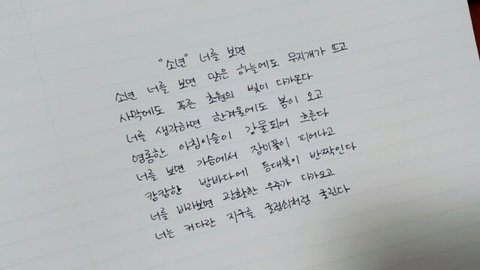 "소년" 너를 보면
소년 너를 보면 맑은 하늘에도 무지개가 뜨고
사막에도 푸른 초원의 빛이 다가온다
너를 생각하면 한겨울에도 봄이 오고
영롱한 아침이슬이 강물되어 흐른다
너를 보면 가슴에서 장미꽃이 피어나고
캄캄한 밤바다에 등대불이 반짝인다
너를 바라보면 광활한 우주가 다가오고
너는 커다란 지구를 굴렁쇠처럼 굴린다